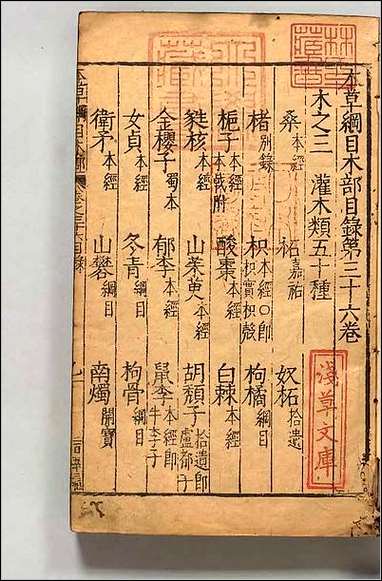 本草綱目木部目錄第三十六卷
木之三 灌木類五十種
桑本經 柘嘉祐 奴柘拾遺
楮別錄 枳本經○即枳實枳殼 枸橘綱目
梔子本經木戟附 酸棗本經 白棘本經
蕤核本經 山茱萸本經 胡頹子拾遺即盧都子
金櫻子蜀本 郁李本經 鼠李本經即牛李子
女貞本經 冬青綱目 枸骨綱目
衛矛本經 山礬綱目 南燭開寶
淺草文庫